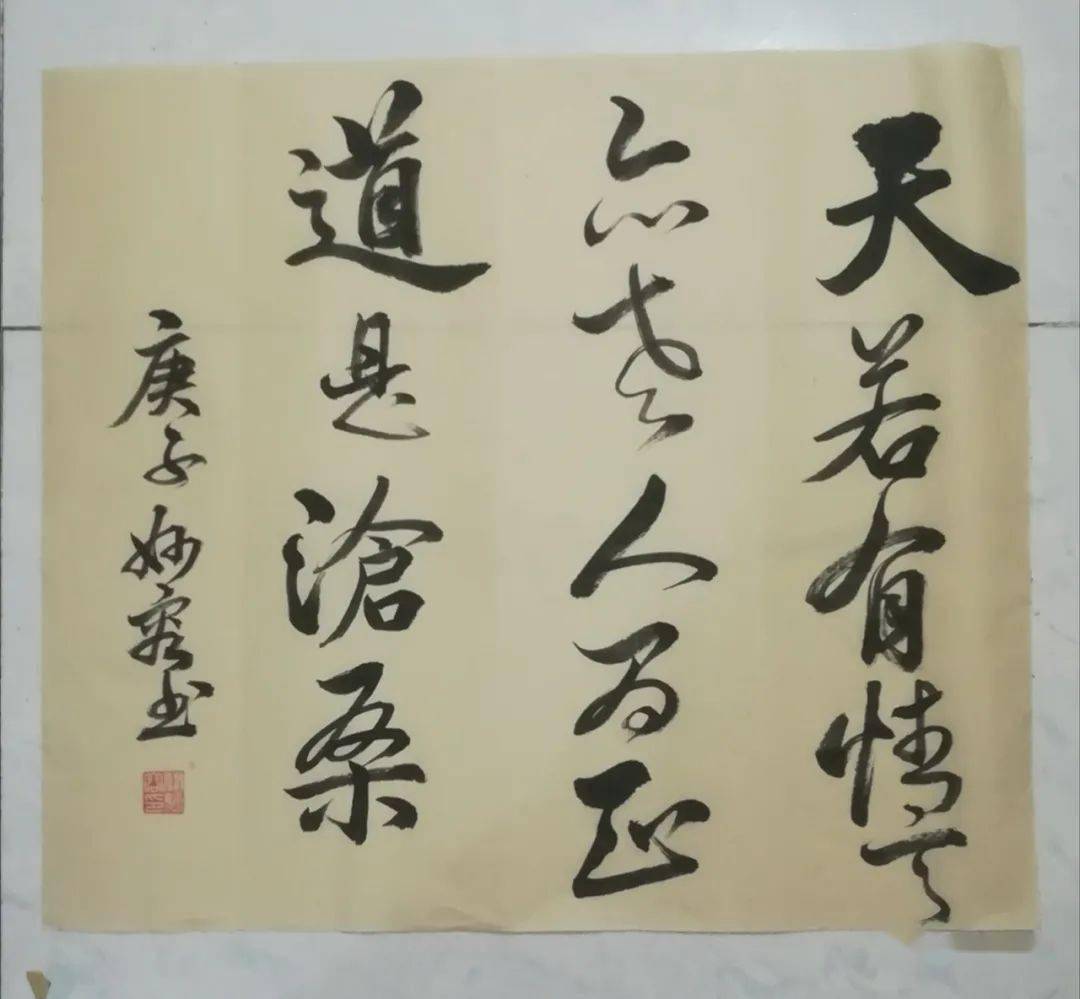 天若有情天
亦老人间正
道是滄桑
庚子妙书